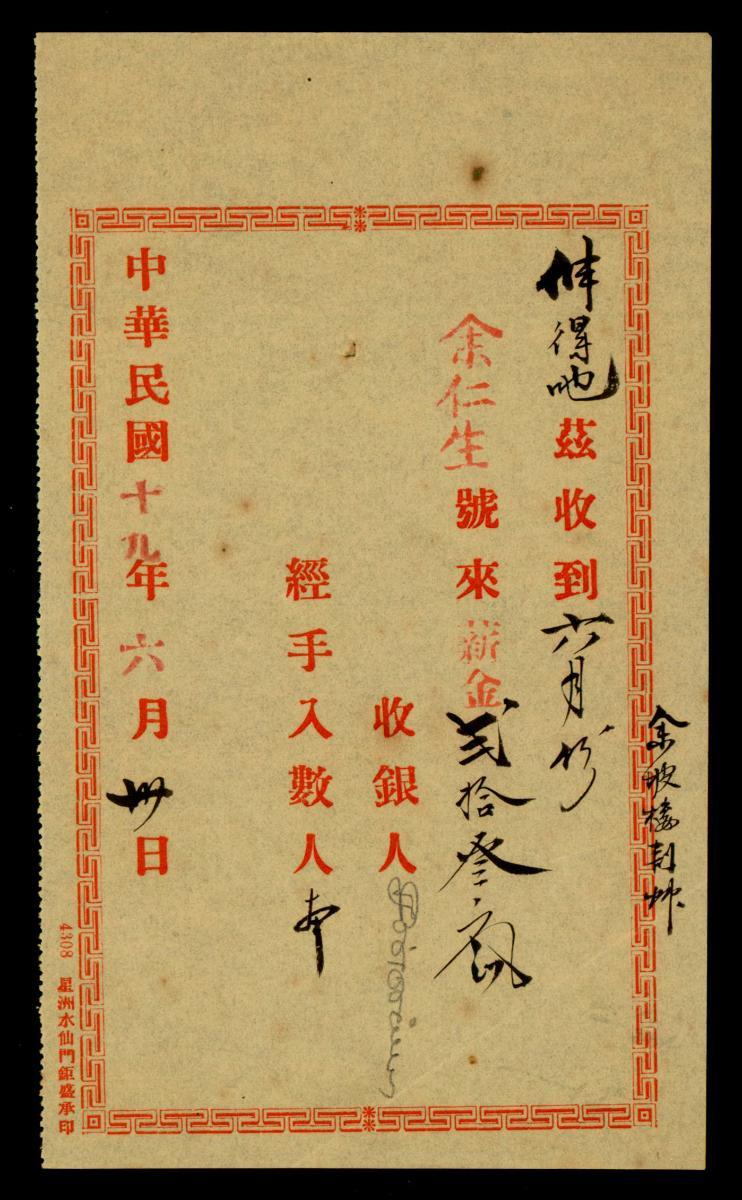 得吔茲收到六月份
余仁生號來薪金弍拾叁
收銀人
經手入數人
中華民國十九年六月卅日
4308 星洲水仙門鉅盛承印